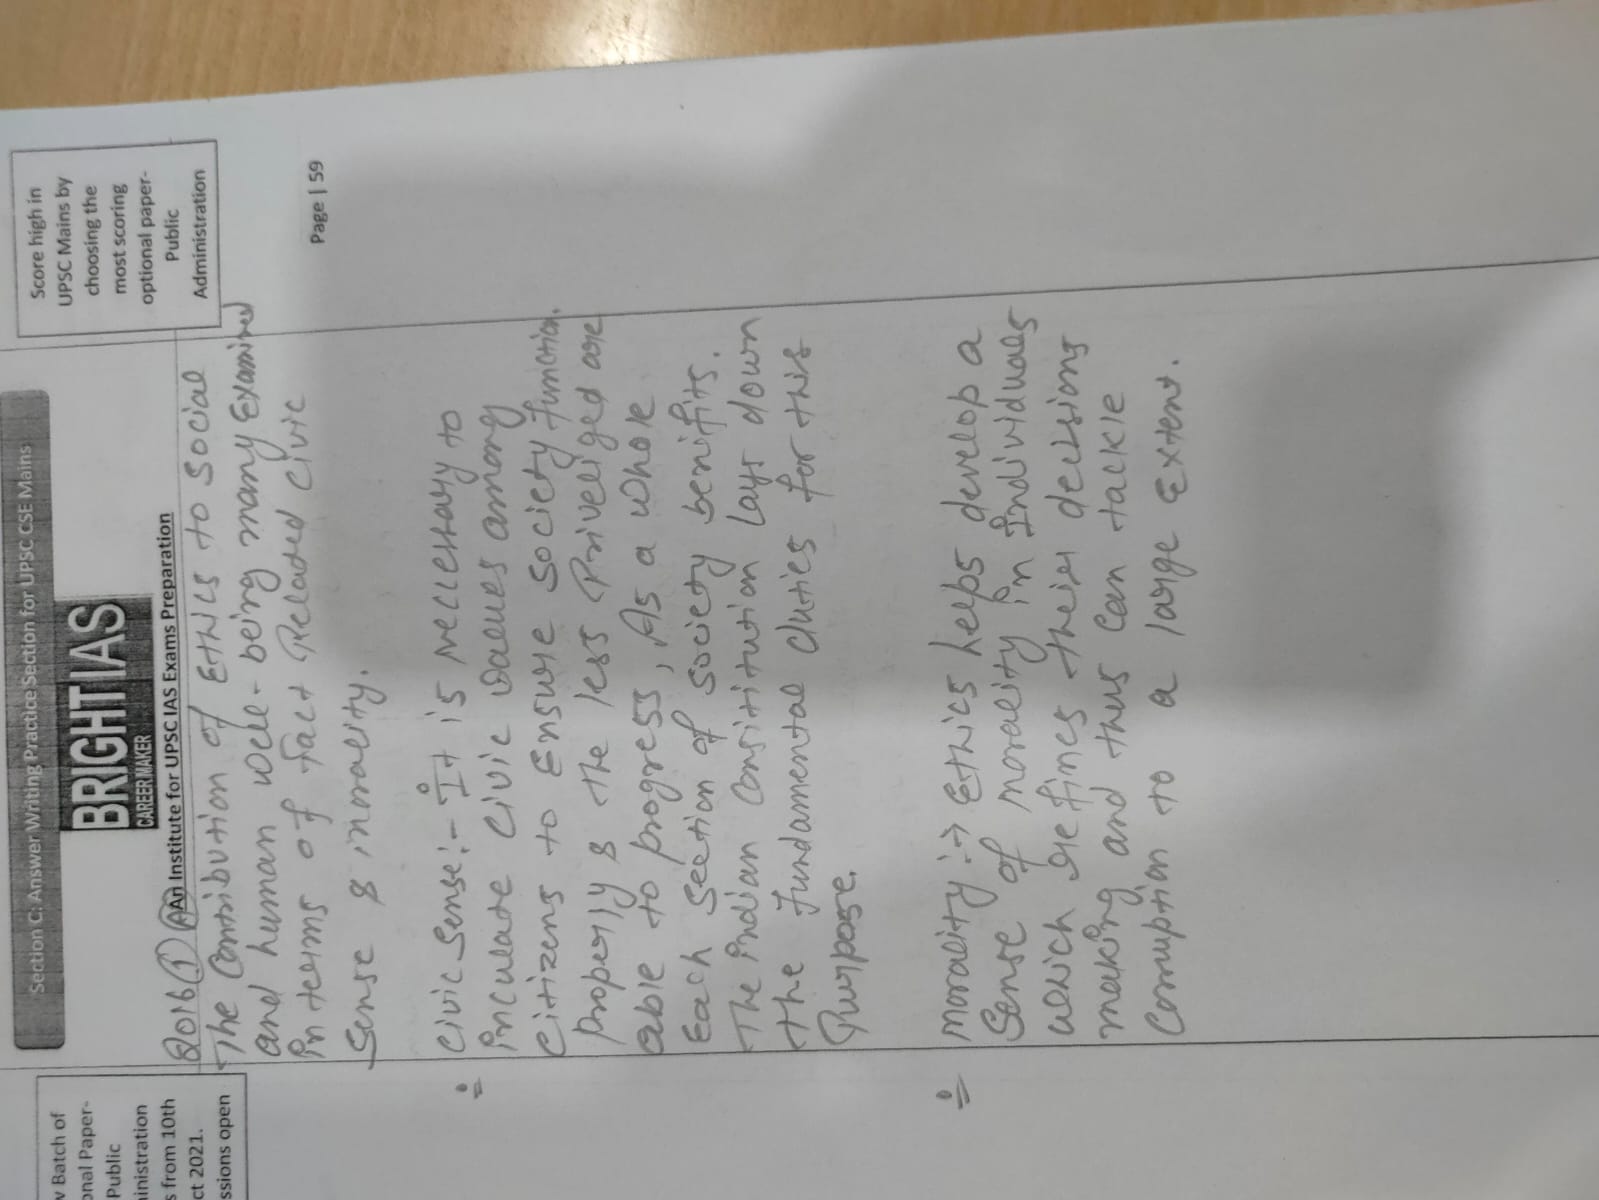 Section C: Answer Writing Practice Section for UPSC CSE Mains
v Batch of
onal Paper-
Public
ministration
s from 10th
ct 2021.
ssions open
BRIGHT IAS
CAREER MAKER
An Institute for UPSC IAS Exams Preparation
Score high in
UPSC Mains by
choosing the
most scoring
optional paper-
Public
Administration
Page | 59
2016 (1)
The Contribution of Ethics to Social
and human well-being many Examined
in terms of fact Related civic
Sense & morality.
Civic Sense:- It is neccessary to
inculcate civic values among
Citizens to Ensure society function
properly & the less Priveliged are
able to progress, As a whole
Each Section of society benifits.
The indian Consititution Lays down
the fundamental duties for this
Purpose.
Morality :→ Ethics helps develop a
Sense of morality in Individuals
which refines their decisions
making and thus Can tackle
Corruption to a large Extent.